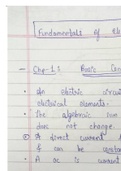 Fundamentals of El
Chp-1.1 Basic Con
An electric circui
electrical elements.
the algebraic sum
does not change.
A direct current
& can be consta
A ac is current